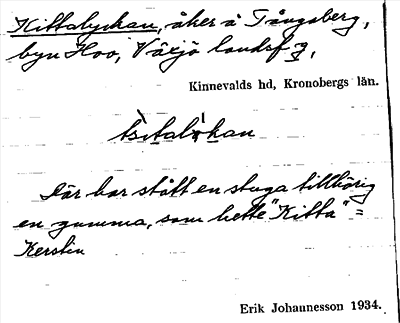 Kittalyckan, åker å Tångsberg,
byn Hoo, Växjö landsf g,
Kinnevalds hd, Kronobergs län.
Där har stått en stuga tillhörig
en gumma, som hette "Kitta" =
Kerstin
Erik Johannesson 1934.